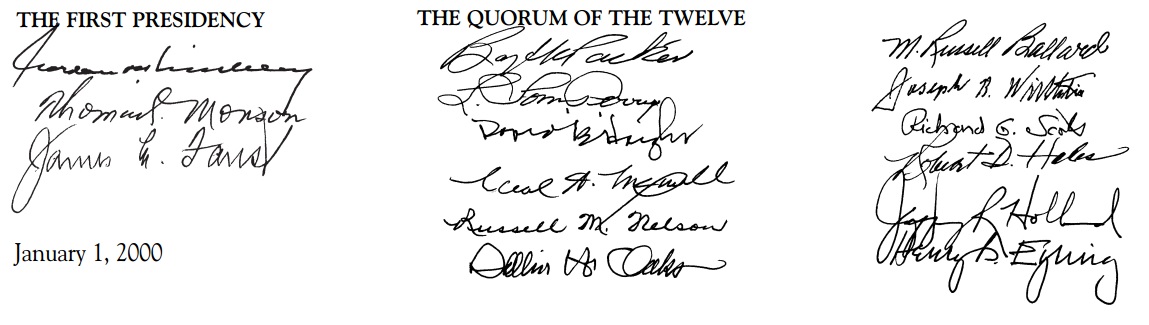 THE FIRST PRESIDENCY
Gordon B. Hinckley
Thomas S. Monson
James E. Faust
January 1, 2000
THE QUORUM OF THE TWELVE
Boyd K Packer
L. Tom Perry
David B. Haight
Neal A. Maxwell
Russell M. Nelson
Dallin H. Oaks
M. Russell Ballard
Joseph B. Wirthlin
Richard G. Scott
Robert D. Hales
Jeffrey R. Holland
Henry B. Eyring